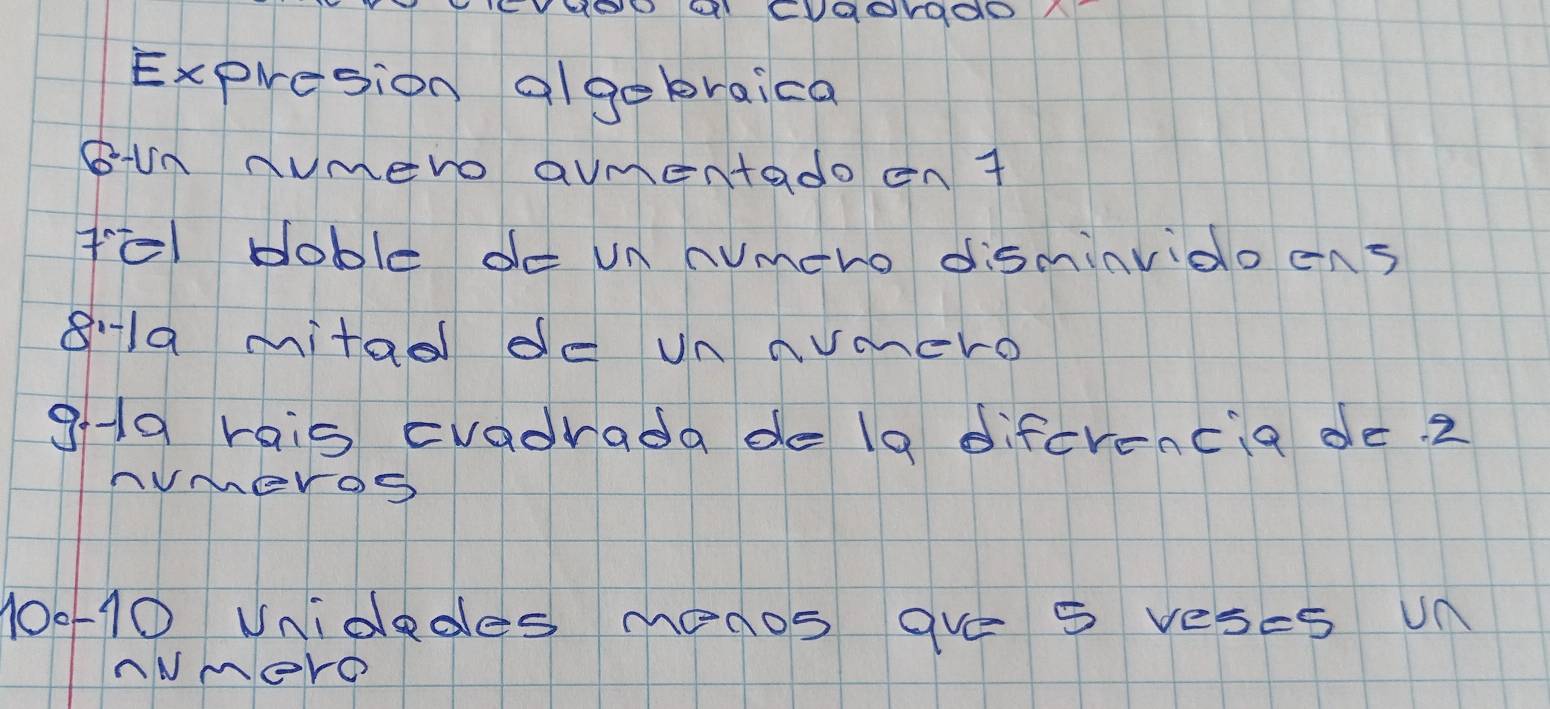 elevado al cuadrado x²
Expresion algebraica
6.-un numero aumentado en 7
7.-el doble de un numero disminuido en 5
8.-la mitad de un numero
9.-la rais cuadrada de la diferencia de 2
numeros
10.-10 unidades menos que 5 veses un
numero